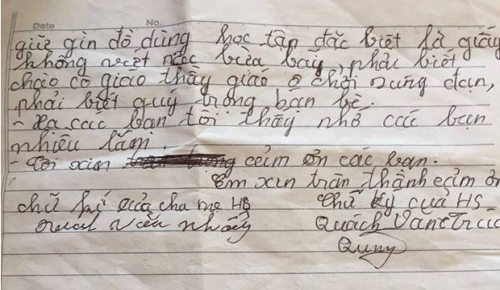 Date No.
giữ gìn đồ dùng học tập đặc biệt là giấy
không viết bừa bãy, phải biết
chào cô giáo thầy giáo chơi súng đạn,
phải biết quý trọng bạn bè.
- Xa các bạn tôi thấy nhớ các bạn
nhiều lắm.
- Tôi xin cẻm ơn các bạn.
Em xin trân thành cẻm ơ
chữ kí của cha mẹ HS Chữ ký của HS
Quách Văn
Quny